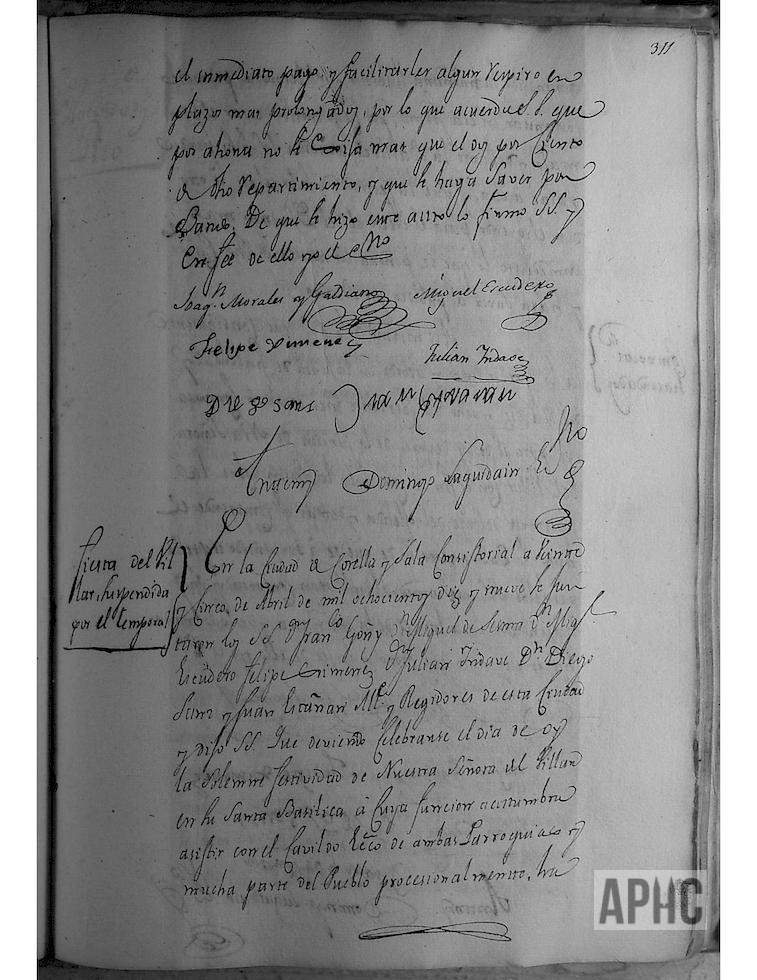 311
el inmediato pago, y facilitarles algun respiro en
plazos mas prolongados, por lo que acuerda S.S. que
por ahora no se exija mas que el dos por Ciento
de dho repartimiento, y que se haga saver por
Bando. De que se hizo este auto lo firmo SS. y
En fee de ello yo el Ss.no
Joaq.n Morales y Galdiano Miguel Escudero
Felipe Ximenez
Julian Yndave
Diego Sanz Juan Escañari
Ante mi Domingo Laquidain Ss.no
Fiesta del Vi
llar, suspendida
por el temporal
En la Ciudad de Corella y Sala Consistorial a Veinte
y Cinco de Abril de mil ochocientos diez y nueve se jun
taron los SS. Dn Fran.co Goñi Dn Miguel de Sesma Dn Mig.l
Escudero Felipe Ximenez Dn Julian Yndave Dn Diego
Sanz y Juan Escañari Al.e y Regidores de esta Ciudad
y dijo SS. Que deviendo Celebrarse el dia de oy
la Solemne festividad de Nuestra Señora del Villar
en su Santa Basilica á Cuya funcion acostumbra
asistir con el Cavildo Ecc.co de ambas Parroquias y
mucha parte del Pueblo procesionalmente, ha
APHC